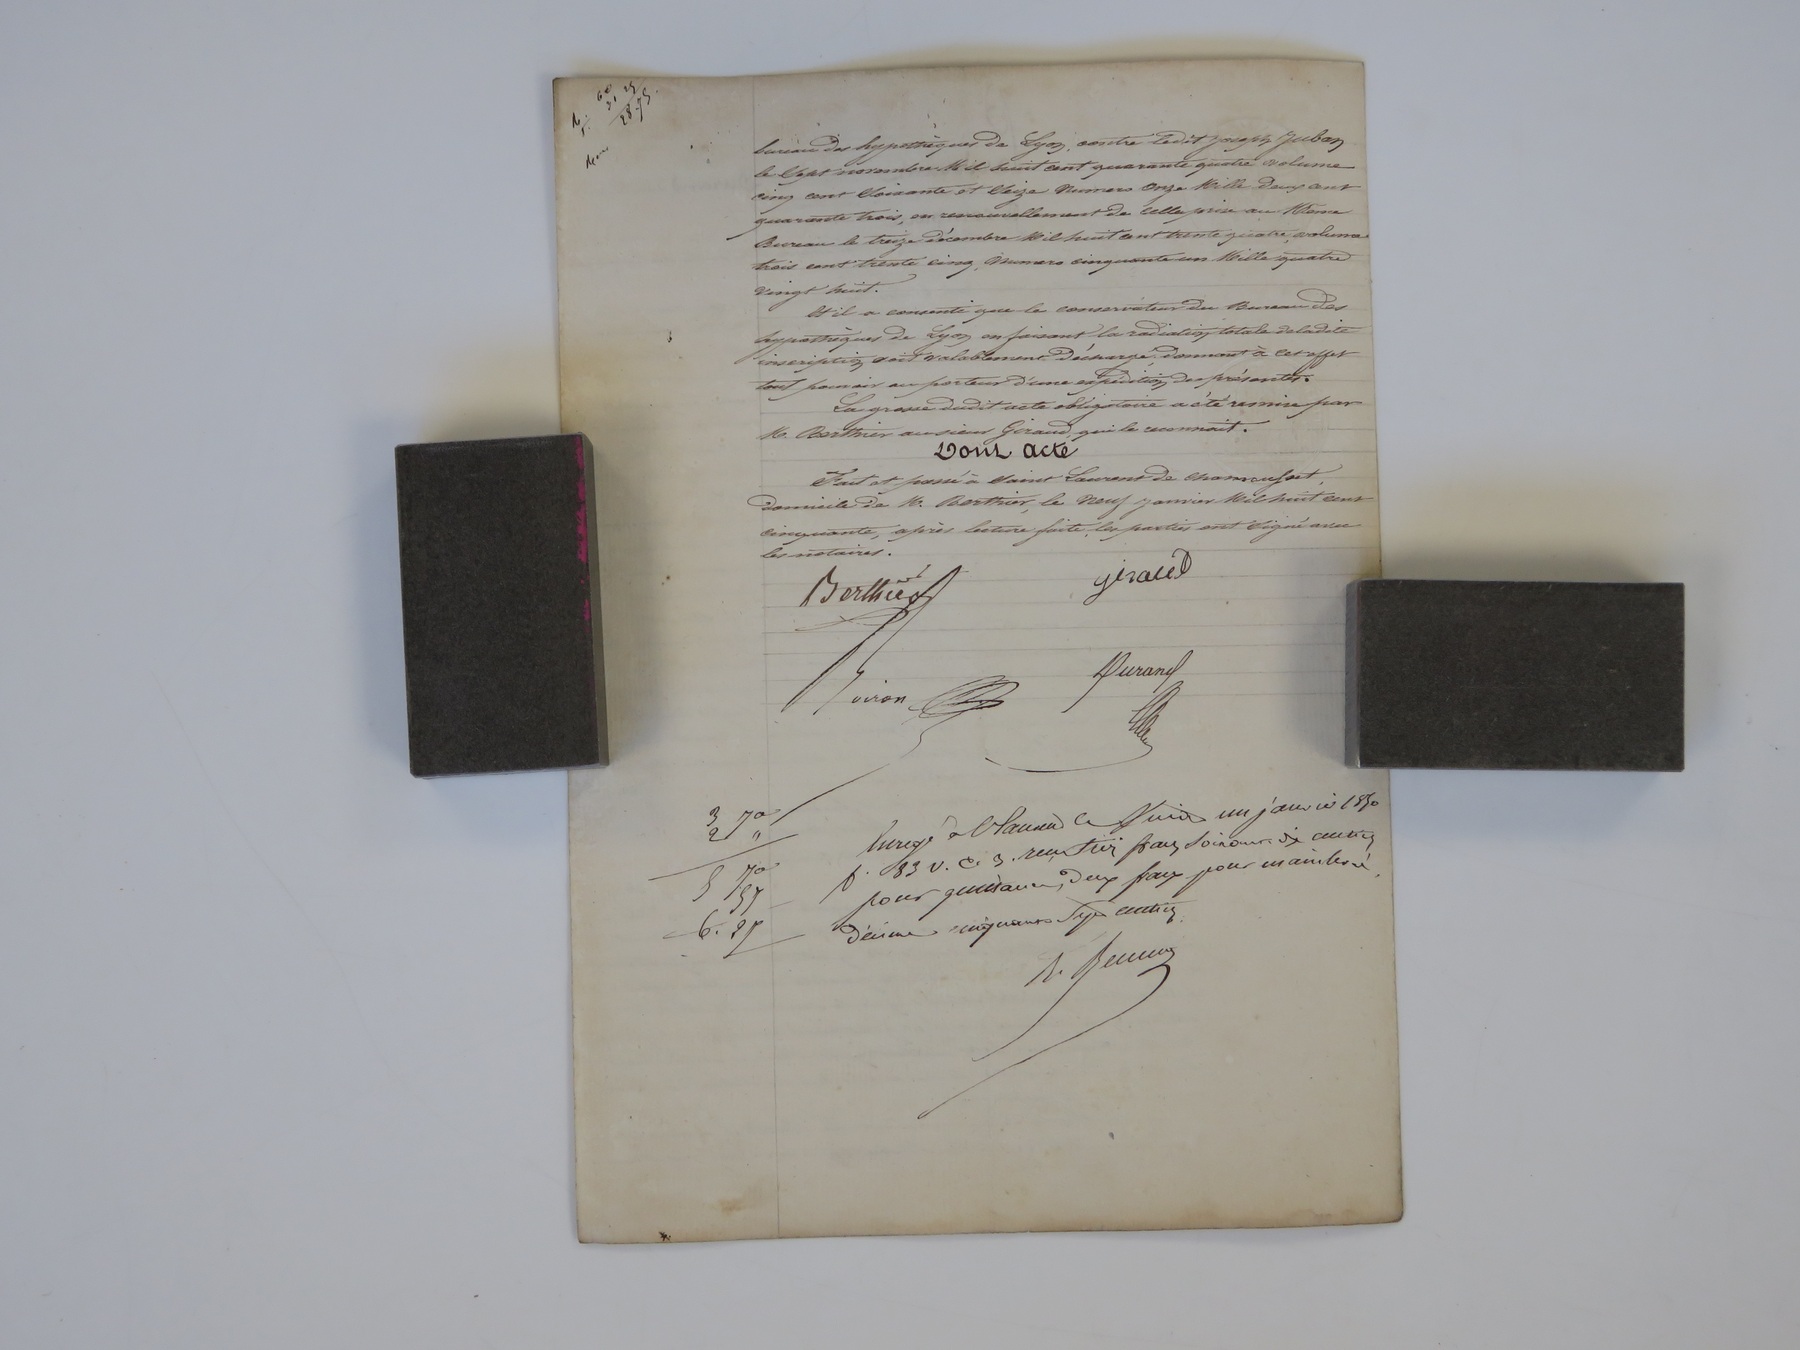 60
31 25
28.75
bureau des hypothèques de Lyon, contre ledit Joseph Juban
le Sept novembre Mil huit cent quarante quatre volume
cinq cent Soixante et Seize Numero Onze Mille Deux cent
quarante trois, en renouvellement de celle prise au Même
Bureau le treize décembre Mil huit cent trente quatre, volume
trois cent trente cinq, Numero cinquante un Mille quatre
vingt huit.
Et il a consenti que le conservateur du Bureau des
hypothèques de Lyon en faisant la radiation totale de ladite
inscription soit valablement Déchargé, donnant à cet effet
tout pouvoir au porteur d'une expédition des présentes.
La grosse dudit acte obligatoire a été remise par
Mr. Berthier au sieur Giraud qui le reconnait.
Dont acte
Fait et passé à Saint Laurent de Chamousset,
domicile de Mr. Berthier, le Neuf janvier Mil huit cent
cinquante, après lecture faite, les parties ont Signé avec
les notaires.
Berthier giraud
Durand
Voiron
3 70
2 "
5 70
57
6. 27
Enregé à St Laurent le vingt un janvier 1850
f. 83 v. C. 3. reçu trois francs soixante dix centimes
pour quittance, deux francs pour mainlevée,
décime cinquante sept centimes